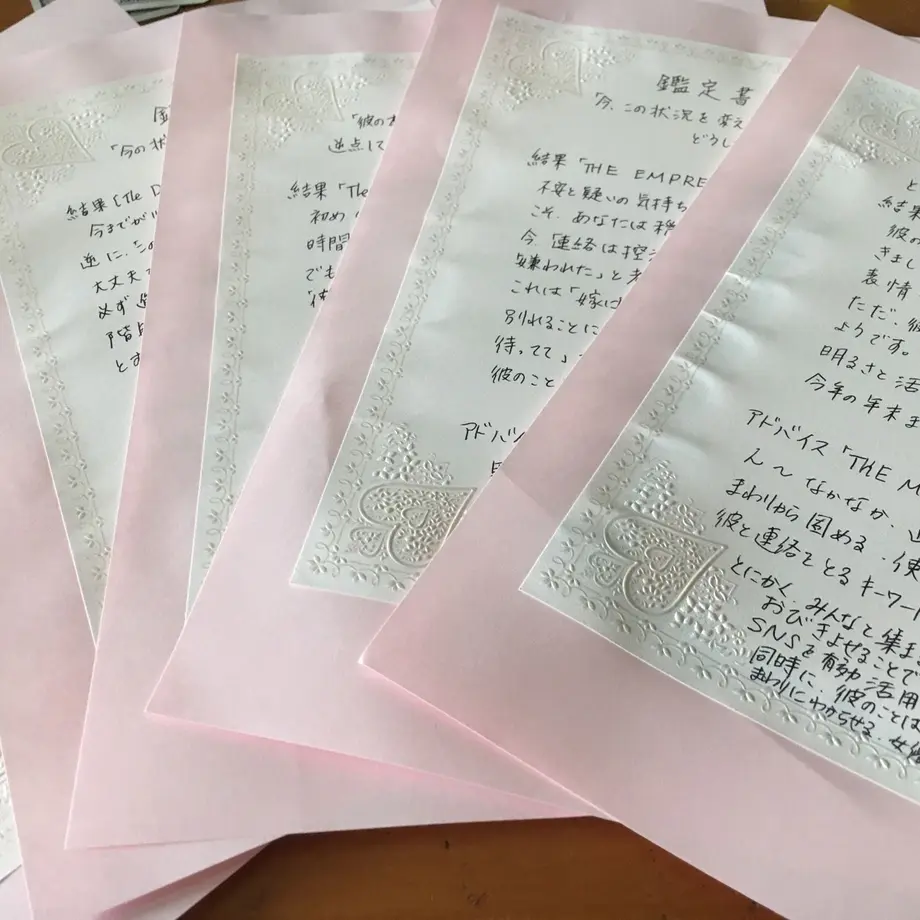 「今の状
結果「The D
今までが
逆に、この
大丈夫
必ず
階
とお
「彼の
逆点して
結果「The
初め
時間
でも
鑑定書
「今、この状況を変え
どうし
結果「THE EMPRE
不安と疑いの気持ち
こそ、あなたは
今、連絡は控
嫌われた」と
これは「嫁に
別れることに
待ってて」
彼のこと
アドバイ
と
結果
彼の
きまし
表情
ただ、彼
ようです。
明るさと活
今年の年末ま
アドバイス「THE M
んでなかなか、近
まわりから固める、使
彼と連絡をとるキーワー
とにかく、みんなと集ま
おびきよせることで
SNSを有効活用
同時に、彼のことは
まわりにわからせる、女